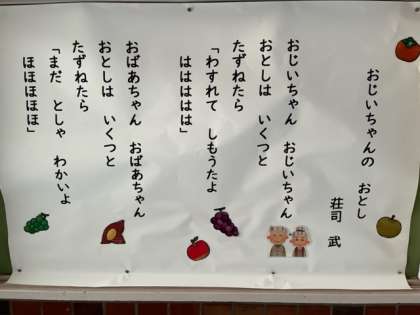 おじいちゃんの　おとし
荘司　武
おじいちゃん　おじいちゃん
おとしは　いくつと
たずねたら
「わすれて　しもうたよ
はははははは」
おばあちゃん　おばあちゃん
おとしは　いくつと
たずねたら
「まだ　としゃ　わかいよ
ほほほほほ」